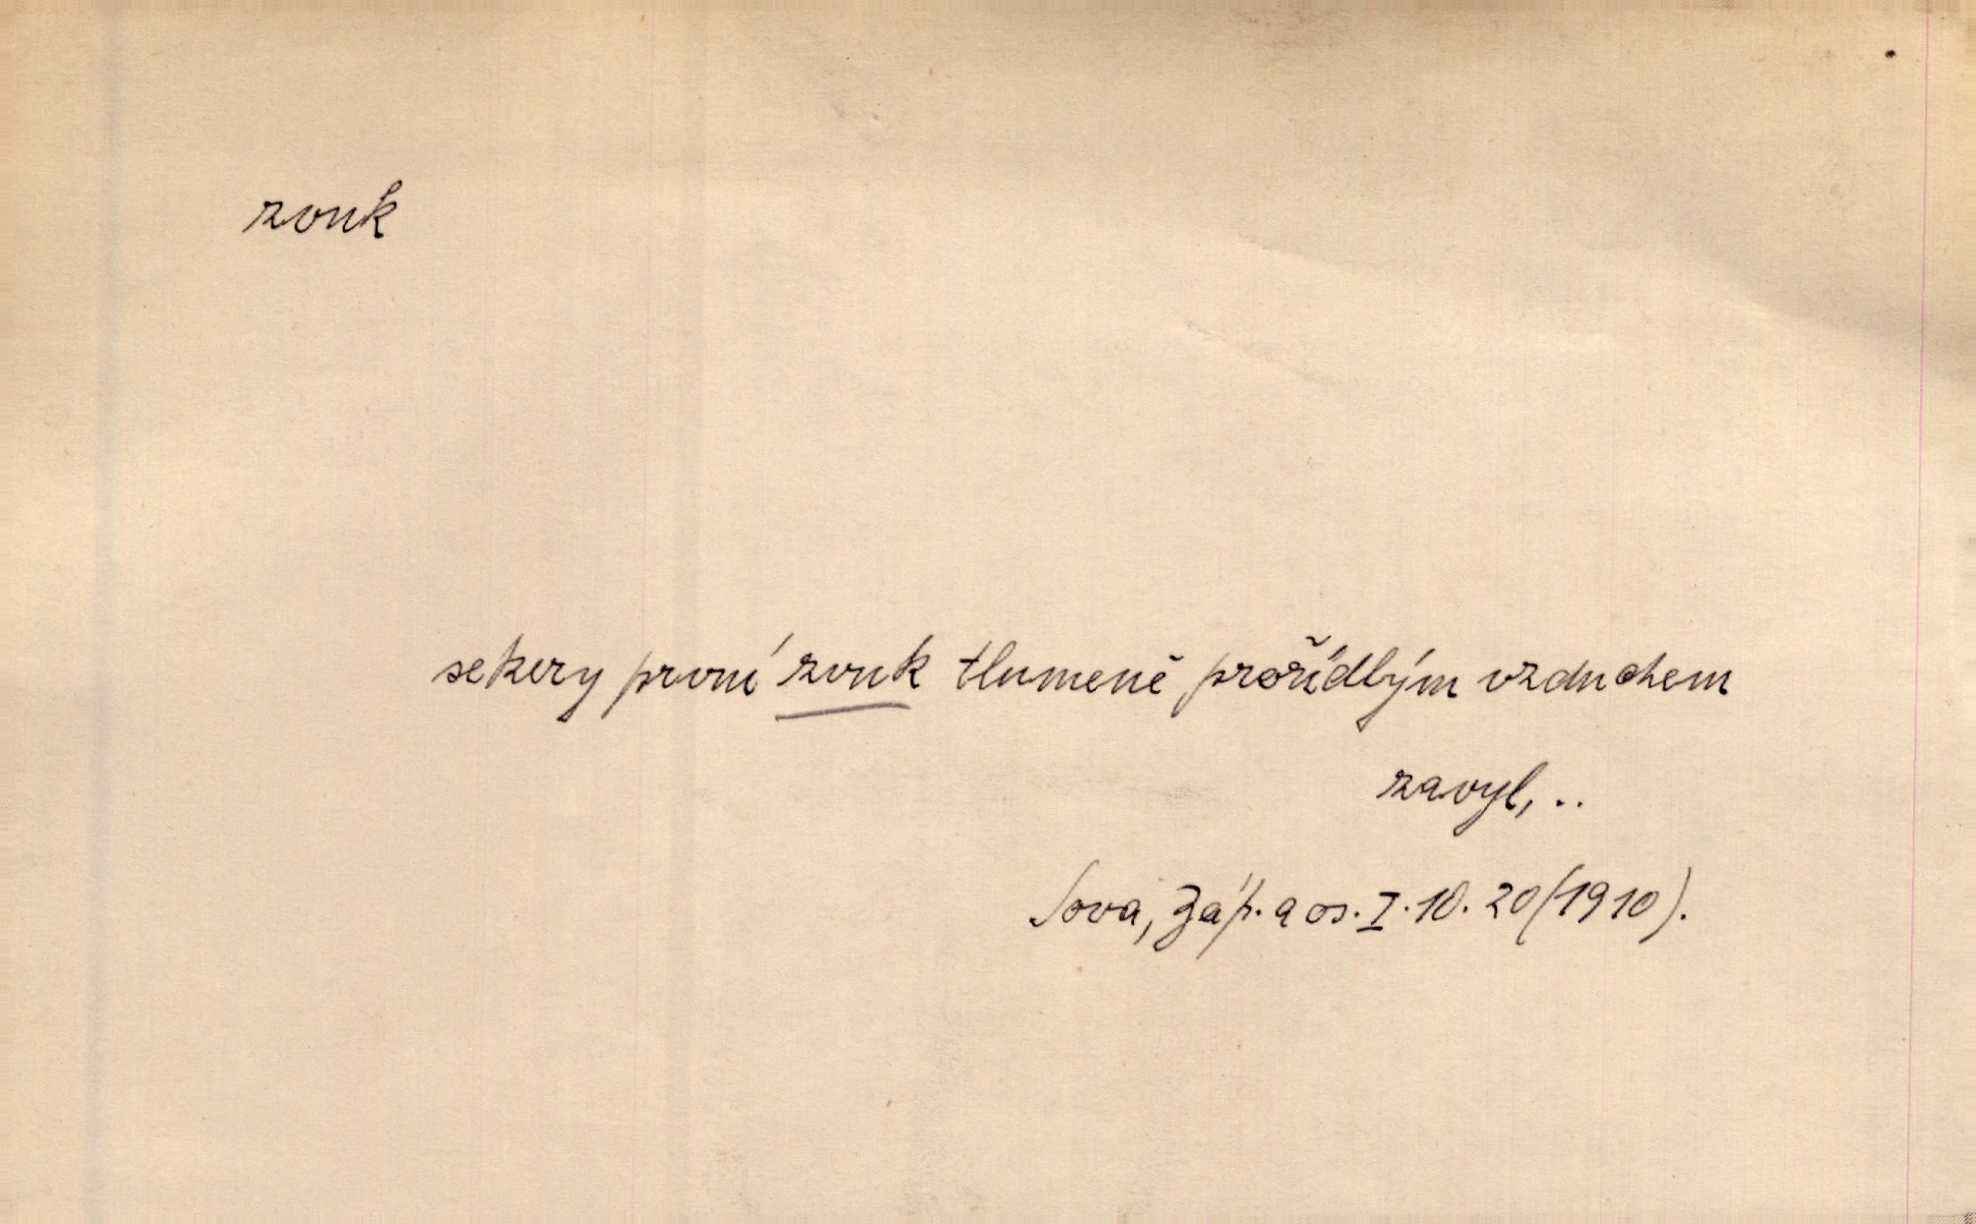 zvuk
sekery první zvuk tlumeně prořídlým vzduchem
zavyl, ..
Sova, Záp. a os. I. 10. 20 (1910).